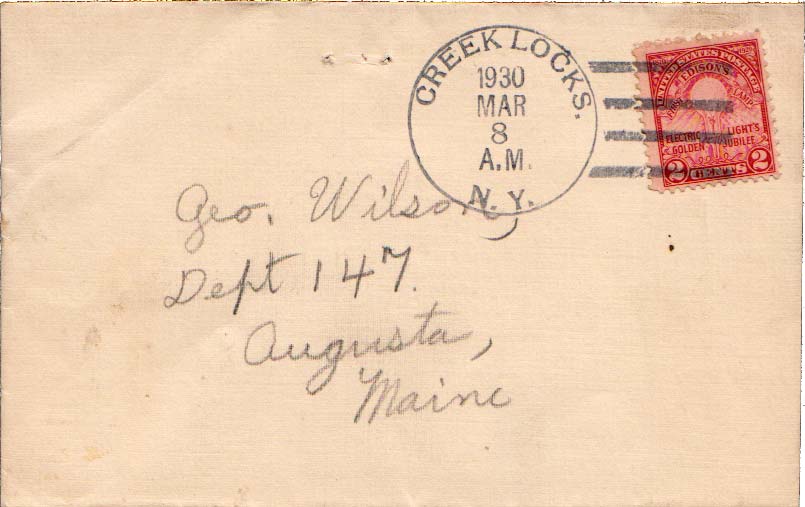 CREEK LOCKS.
1930
MAR
8
A.M.
N. Y.
UNITED STATES POSTAGE
EDISON'S
FIRST LAMP
ELECTRIC LIGHT'S
GOLDEN JUBILEE
2 CENTS 2
Geo. Wilson,
Dept 147.
Augusta,
Maine